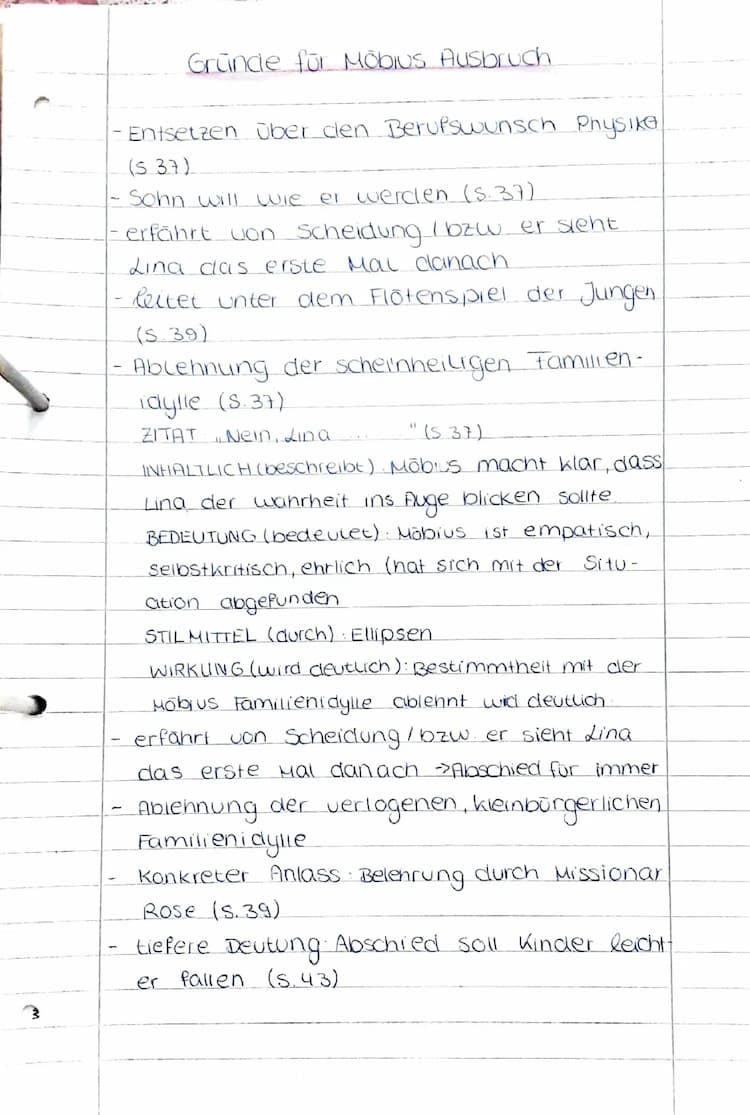 Gründe für Möbius Ausbruch
- Entsetzen über den Berufswunsch Physiker
(S 37)
- Sohn will wie er werden (S. 37)
- erfährt von Scheidung / bzw er sieht
Lina das erste Mal danach
- leitet unter dem Flötenspiel der Jungen
(S. 39)
- Ablehnung der scheinheiligen Familien-
idylle (S. 37)
ZITAT „Nein, Lina ... " (S 37)
INHALTLICH (beschreibt). Möbius macht klar, dass
Lina der Wahrheit ins Auge blicken sollte
BEDEUTUNG (bedeutet): Möbius ist empatisch,
selbstkritisch, ehrlich (hat sich mit der Situ-
ation abgefunden
STILMITTEL (durch): Ellipsen
WIRKUNG (wird deutlich): Bestimmtheit mit der
Möbius Familienidylle ablehnt wird deutlich
- erfährt von Scheidung / bzw. er sieht Lina
das erste Mal danach → Abschied für immer
- Ablehnung der verlogenen, kleinbürgerlichen
Familienidylle
- Konkreter Anlass: Belehrung durch Missionar
Rose (S. 39)
- tiefere Deutung: Abschied soll Kinder leicht
er fallen (S. 43)
3